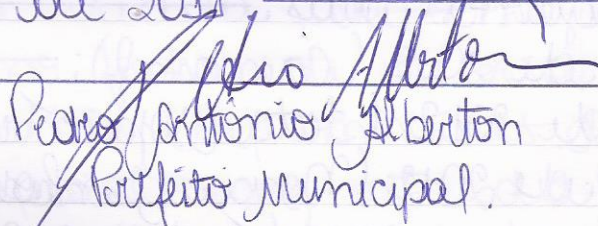 de 2011
Pedro Antônio Alberton
Prefeito Municipal.